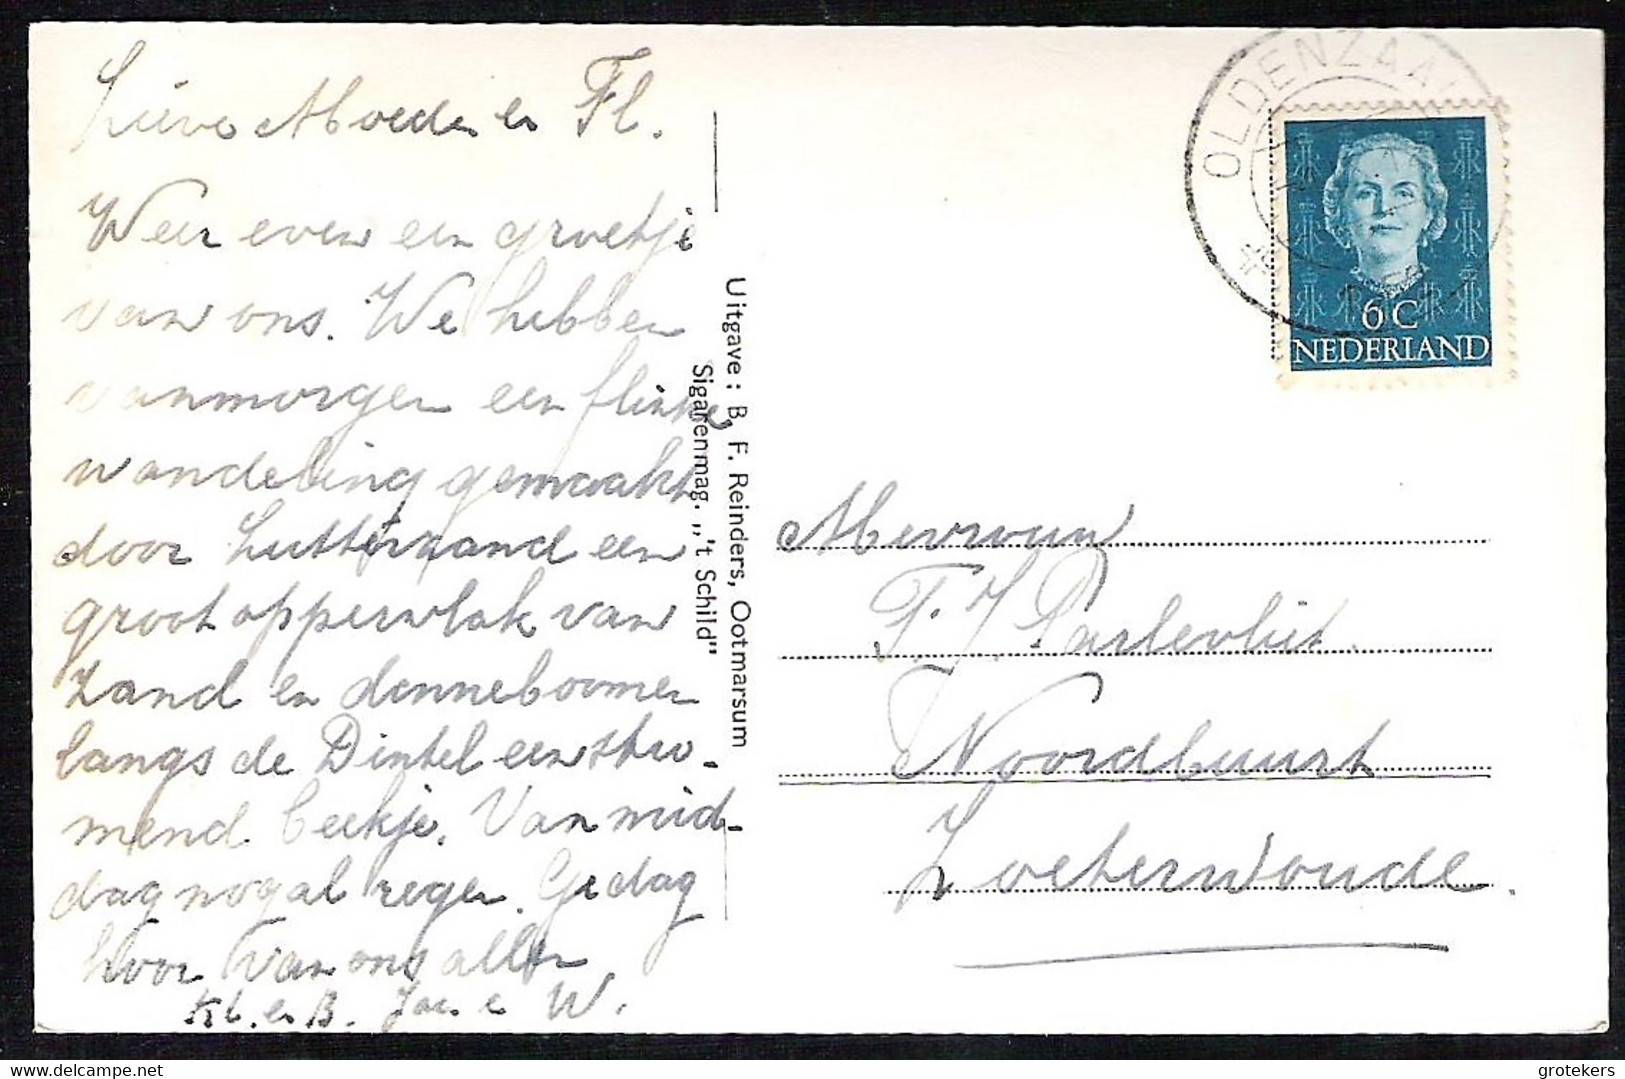 Lieve Moeder en Fl.
Weer even een groetje
van ons. We hebben
vanmorgen een flinke
wandeling gemaakt
door Lutterzand een
groot oppervlak van
zand en denneboomen
langs de Dinkel een stro-
mend beekje. Van mid-
dag nogal regen. Gedag
hoor van ons allen
Kl. en B. Jac e W.
Uitgave: B. F. Reinders, Ootmarsum
Sigarenmag. „'t Schild"
OLDENZAAL
6 C
NEDERLAND
Mevrouw
F. J. Parlevliet.
Noordbuurt
Zoeterwoude.
delcampe.net
grotekers